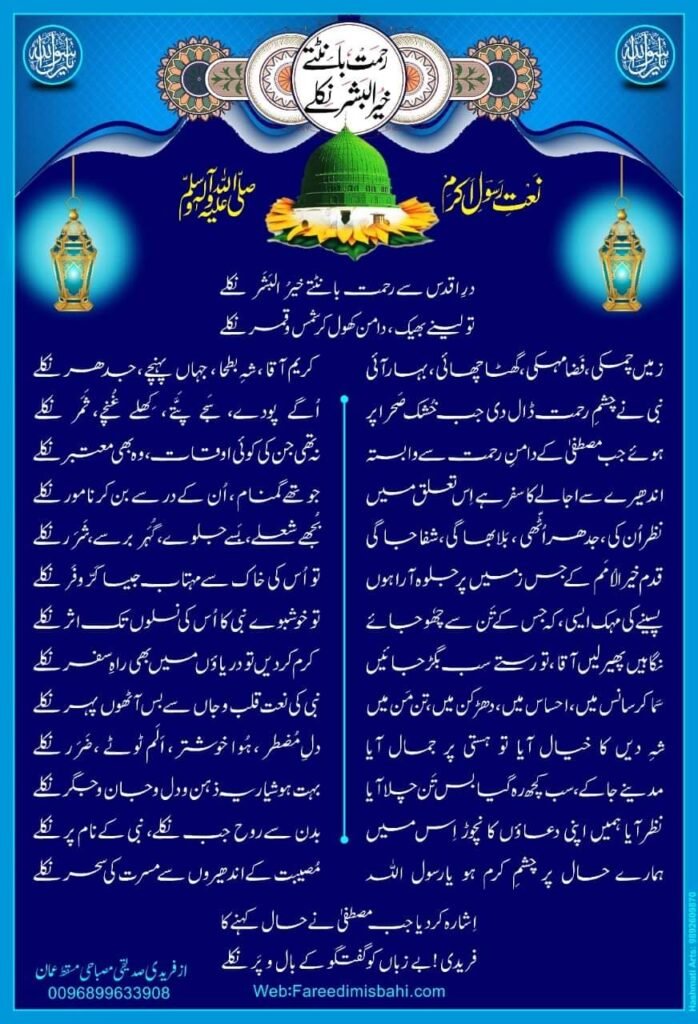 یا رسول اللہ
یا رسول اللہ
رحمت بانٹتے
خیر البشر نکلے
نعت رسول اکرم
صلی اللہ علیہ وآلہ وسلم
درِ اقدس سے رحمت بانٹتے خیرُ البَشَر نکلے
تو لینے بھیک، دامن کھول کر شمس و قمر نکلے
زمیں چمکی، فَضا مہکی، گھٹا چھائی، بہار آئی
کریم آقا، شہِ بطحا، جہاں پہنچے، جدھر نکلے
نبی نے چشمِ رحمت ڈال دی جب خشک صَحرا پر
اُگے پودے، سَجے پتّے، کھلے غُنچے، ثَمر نکلے
ہوئے جب مصطفیٰ کے دامنِ رحمت سے وابستہ
نہ تھی جن کی کوئی اوقات، وہ بھی معتبر نکلے
اندھیرے سے اجالے کا سفر ہے اِس تعلق میں
جو تھے گمنام، اُن کے در سے بن کر نامور نکلے
نظر اُن کی، جدھر اُٹھی، بَلا بھاگی، شفا جاگی
بُجھے شعلے، بَسے جلوے، گُہر برسے، شَرَر نکلے
قدم خیر الاُمم کے جس زمیں پر جلوہ آرا ہوں
تو اُس کی خاک سے مہتاب جیسا کرّ و فَر نکلے
پسینے کی مہک ایسی، کہ جس کے تَن سے چھو جائے
تو خوشبوے نبی کا اُس کی نسلوں تک اثر نکلے
نگاہیں پھیر لیں آقا، تو رستے سب بگڑ جائیں
کرم کردیں تو دریاؤں میں بھی راہِ سفر نکلے
سَما کر سانس میں، احساس میں، دھڑکن میں، تن مَن میں
نبی کی نعت قلب و جاں سے بس آٹھوں پہر نکلے
شہِ دیں کا خیال آیا تو ہستی پر جمال آیا
دلِ مُضطر، ہُوا خوشتر، اَلَم ٹوٹے، ضَرَر نکلے
مدینے جاکے، سب کچھ رہ گیا بس تَن چلا آیا
بہت ہوشیار یہ ذہن و دل و جان و جگر نکلے
نظر آیا ہمیں اپنی دعاؤں کا نچوڑ اِس میں
بدن سے روح جب نکلے، نبی کے نام پر نکلے
ہمارے حال پر چشمِ کرم ہو یا رسول اللہ
مُصیبت کے اندھیروں سے مسرت کی سحر نکلے
اِشارہ کر دیا جب مصطفیٰ نے حال کہنے کا
فریدی! بے زباں کو گفتگو کے بال و پَر نکلے
از فریدی صدیقی مصباحی مسقط عمان
0096899633908
Web:Fareedimisbahi.com
Hashmati Arts: 9892609870